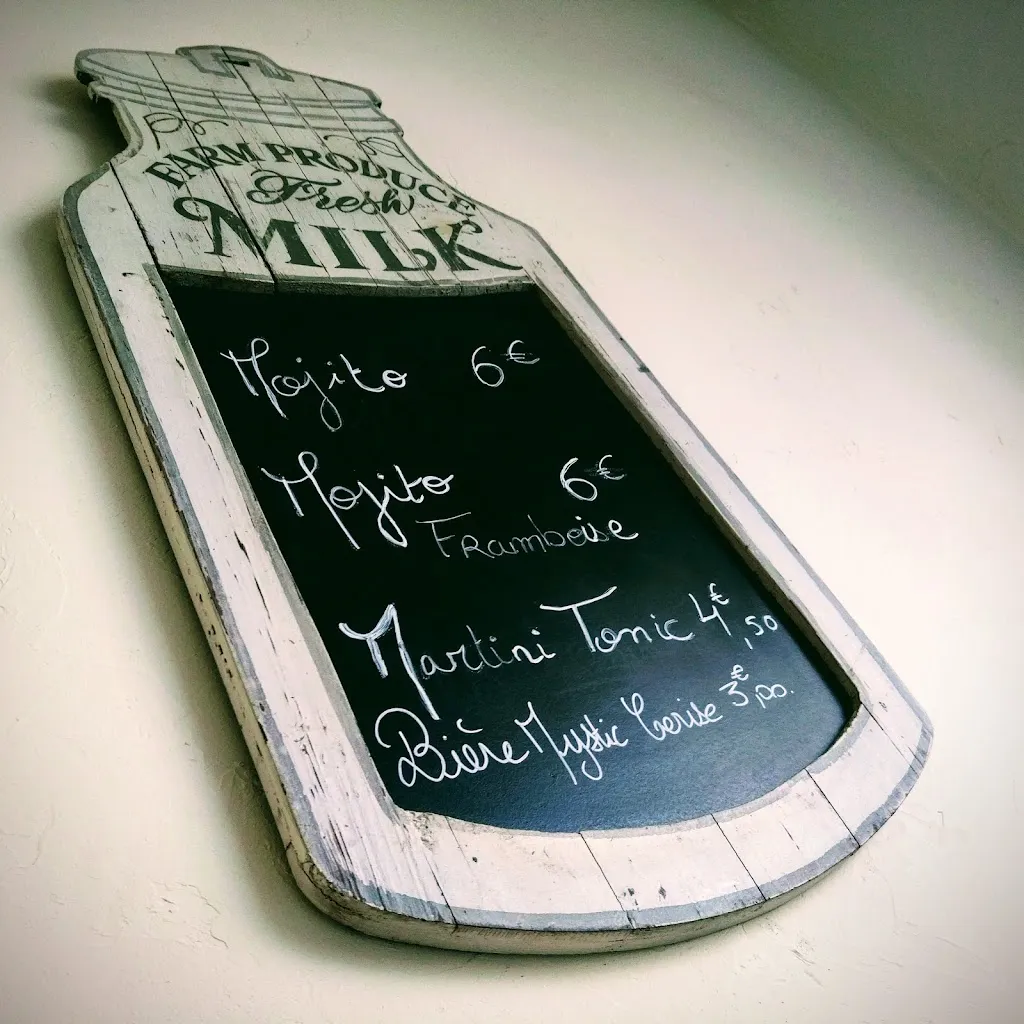 FARM PRODUCE
Fresh
MILK
Mojito 6€
Mojito 6€
Framboise
Martini Tonic 4€,50
Bière Mystic Cerise 3€,00.